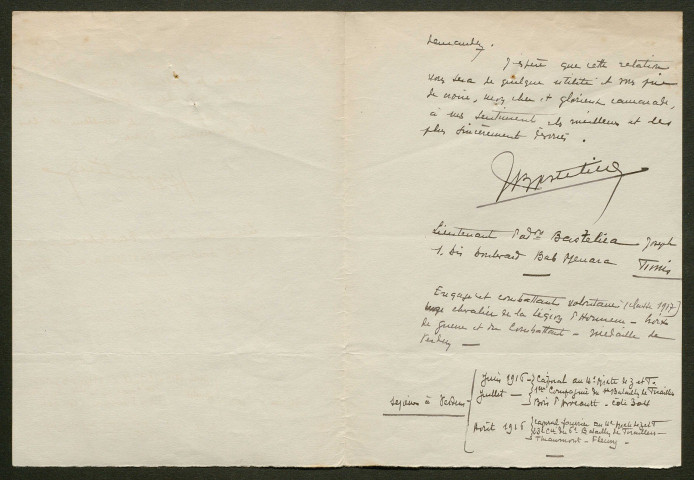 demandez.
J'espère que cette relation
vous sera de quelque utilité et vous prie
de croire, mon cher et glorieux camarade,
à mes sentiments les meilleurs et les
plus sincèrement dévoués.
JBastelica
Lieutenant d'adon Bastelica Joseph
1, bis boulevard Bab Menara Tunis
Engagé et combattant volontaire (classe 1917)
chevalier de la légion d'Honneur - Croix
de guerre et du Combattant - médaille de
Verdun —
séjour à Verdun
Juin 1916 - Caporal au 4e Mixte de Z et T.
Juillet — Compagnie du Bataillon de Tirailleurs
Bois d'Avocourt - Côte 304
Août 1916 caporal fourrier au 4e Mixte de Z et T
Cie du 6e Bataillon de Tirailleurs
Thiaumont - Fleury -